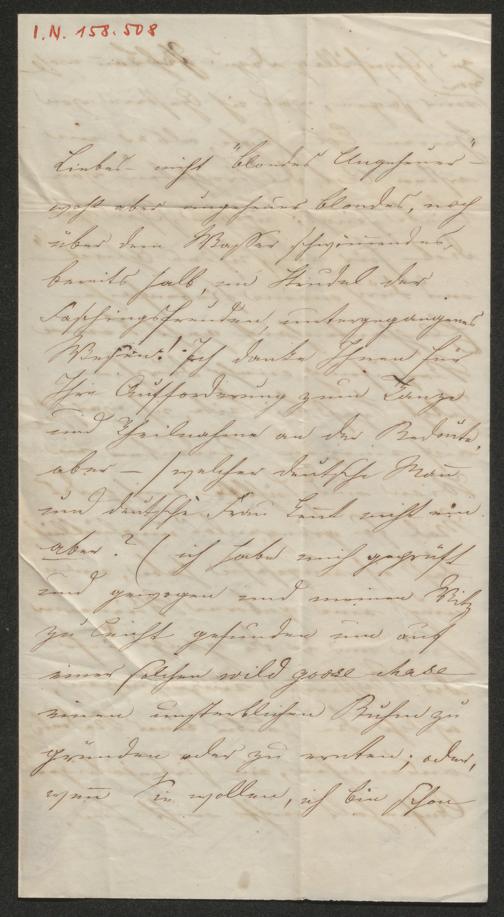 I.N. 158.508
Liebes – nicht "blondes Ungeheuer" –
wohl aber ungeheuer blondes, noch
über dem Wasser schwimmendes,
bereits halb, im Strudel der
Faschingsfreuden, untergegangenes
Wesen! Ich danke Ihnen für
Ihre Aufforderung zum Tanze
und Theilnahme an der Redoute,
aber – (welcher deutsche Mann
und deutsche Frau kennt nicht ein
aber?) ich habe mich geprüft
und gewogen und meinen Witz
zu leicht gefunden um auf
einer solchen wild goose chase
einen unsterblichen Ruhm zu
gründen oder zu ernten; oder,
wenn Sie wollen, ich bin schon